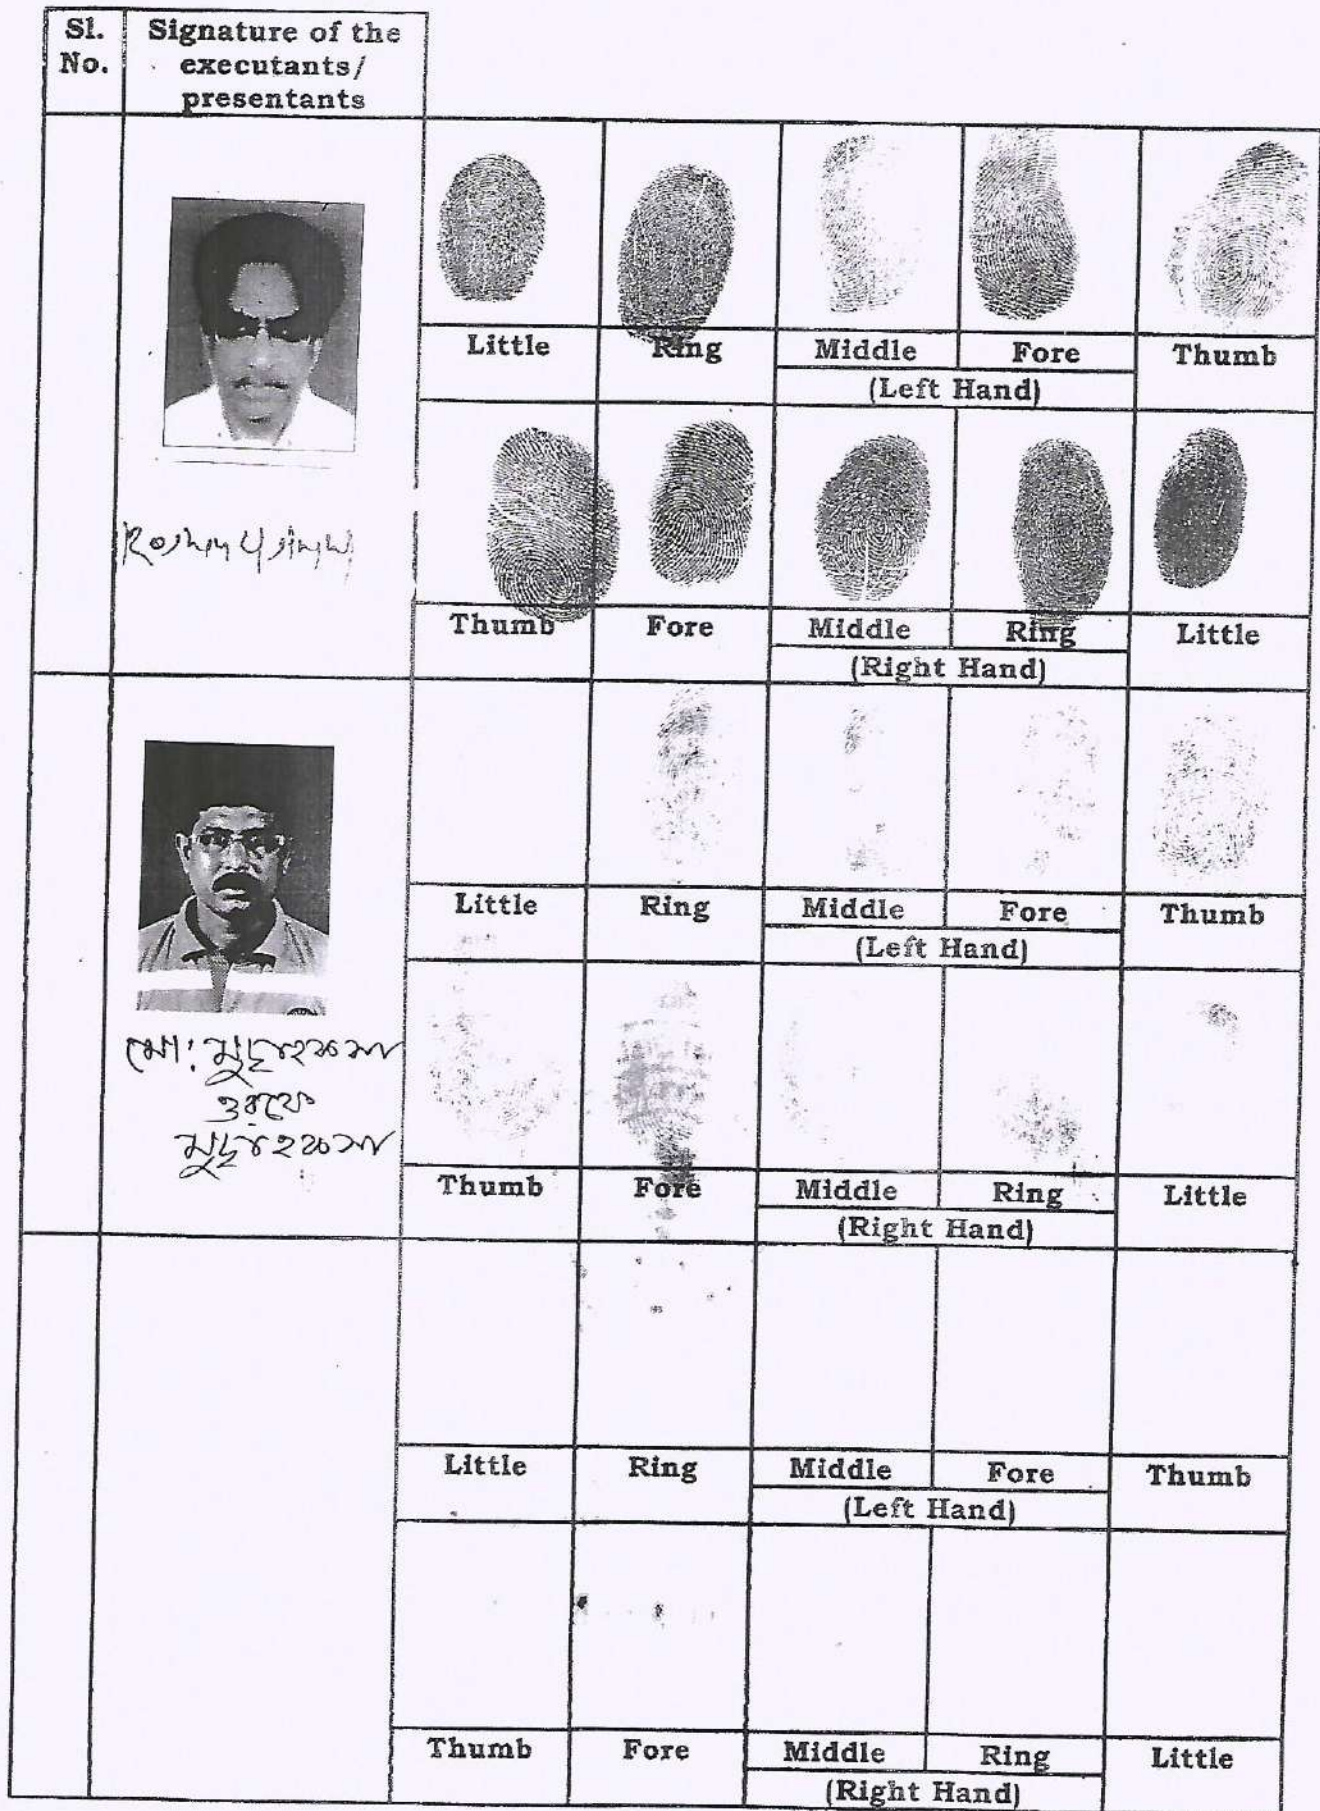 Sl. No.
Signature of the
executants/
presentants
Little Ring Middle Fore Thumb
(Left Hand)
Thumb Fore Middle Ring Little
(Right Hand)
Little Ring Middle Fore Thumb
(Left Hand)
মো:
ওরফে
Thumb Fore Middle Ring Little
(Right Hand)
Little Ring Middle Fore Thumb
(Left Hand)
Thumb Fore Middle Ring Little
(Right Hand)